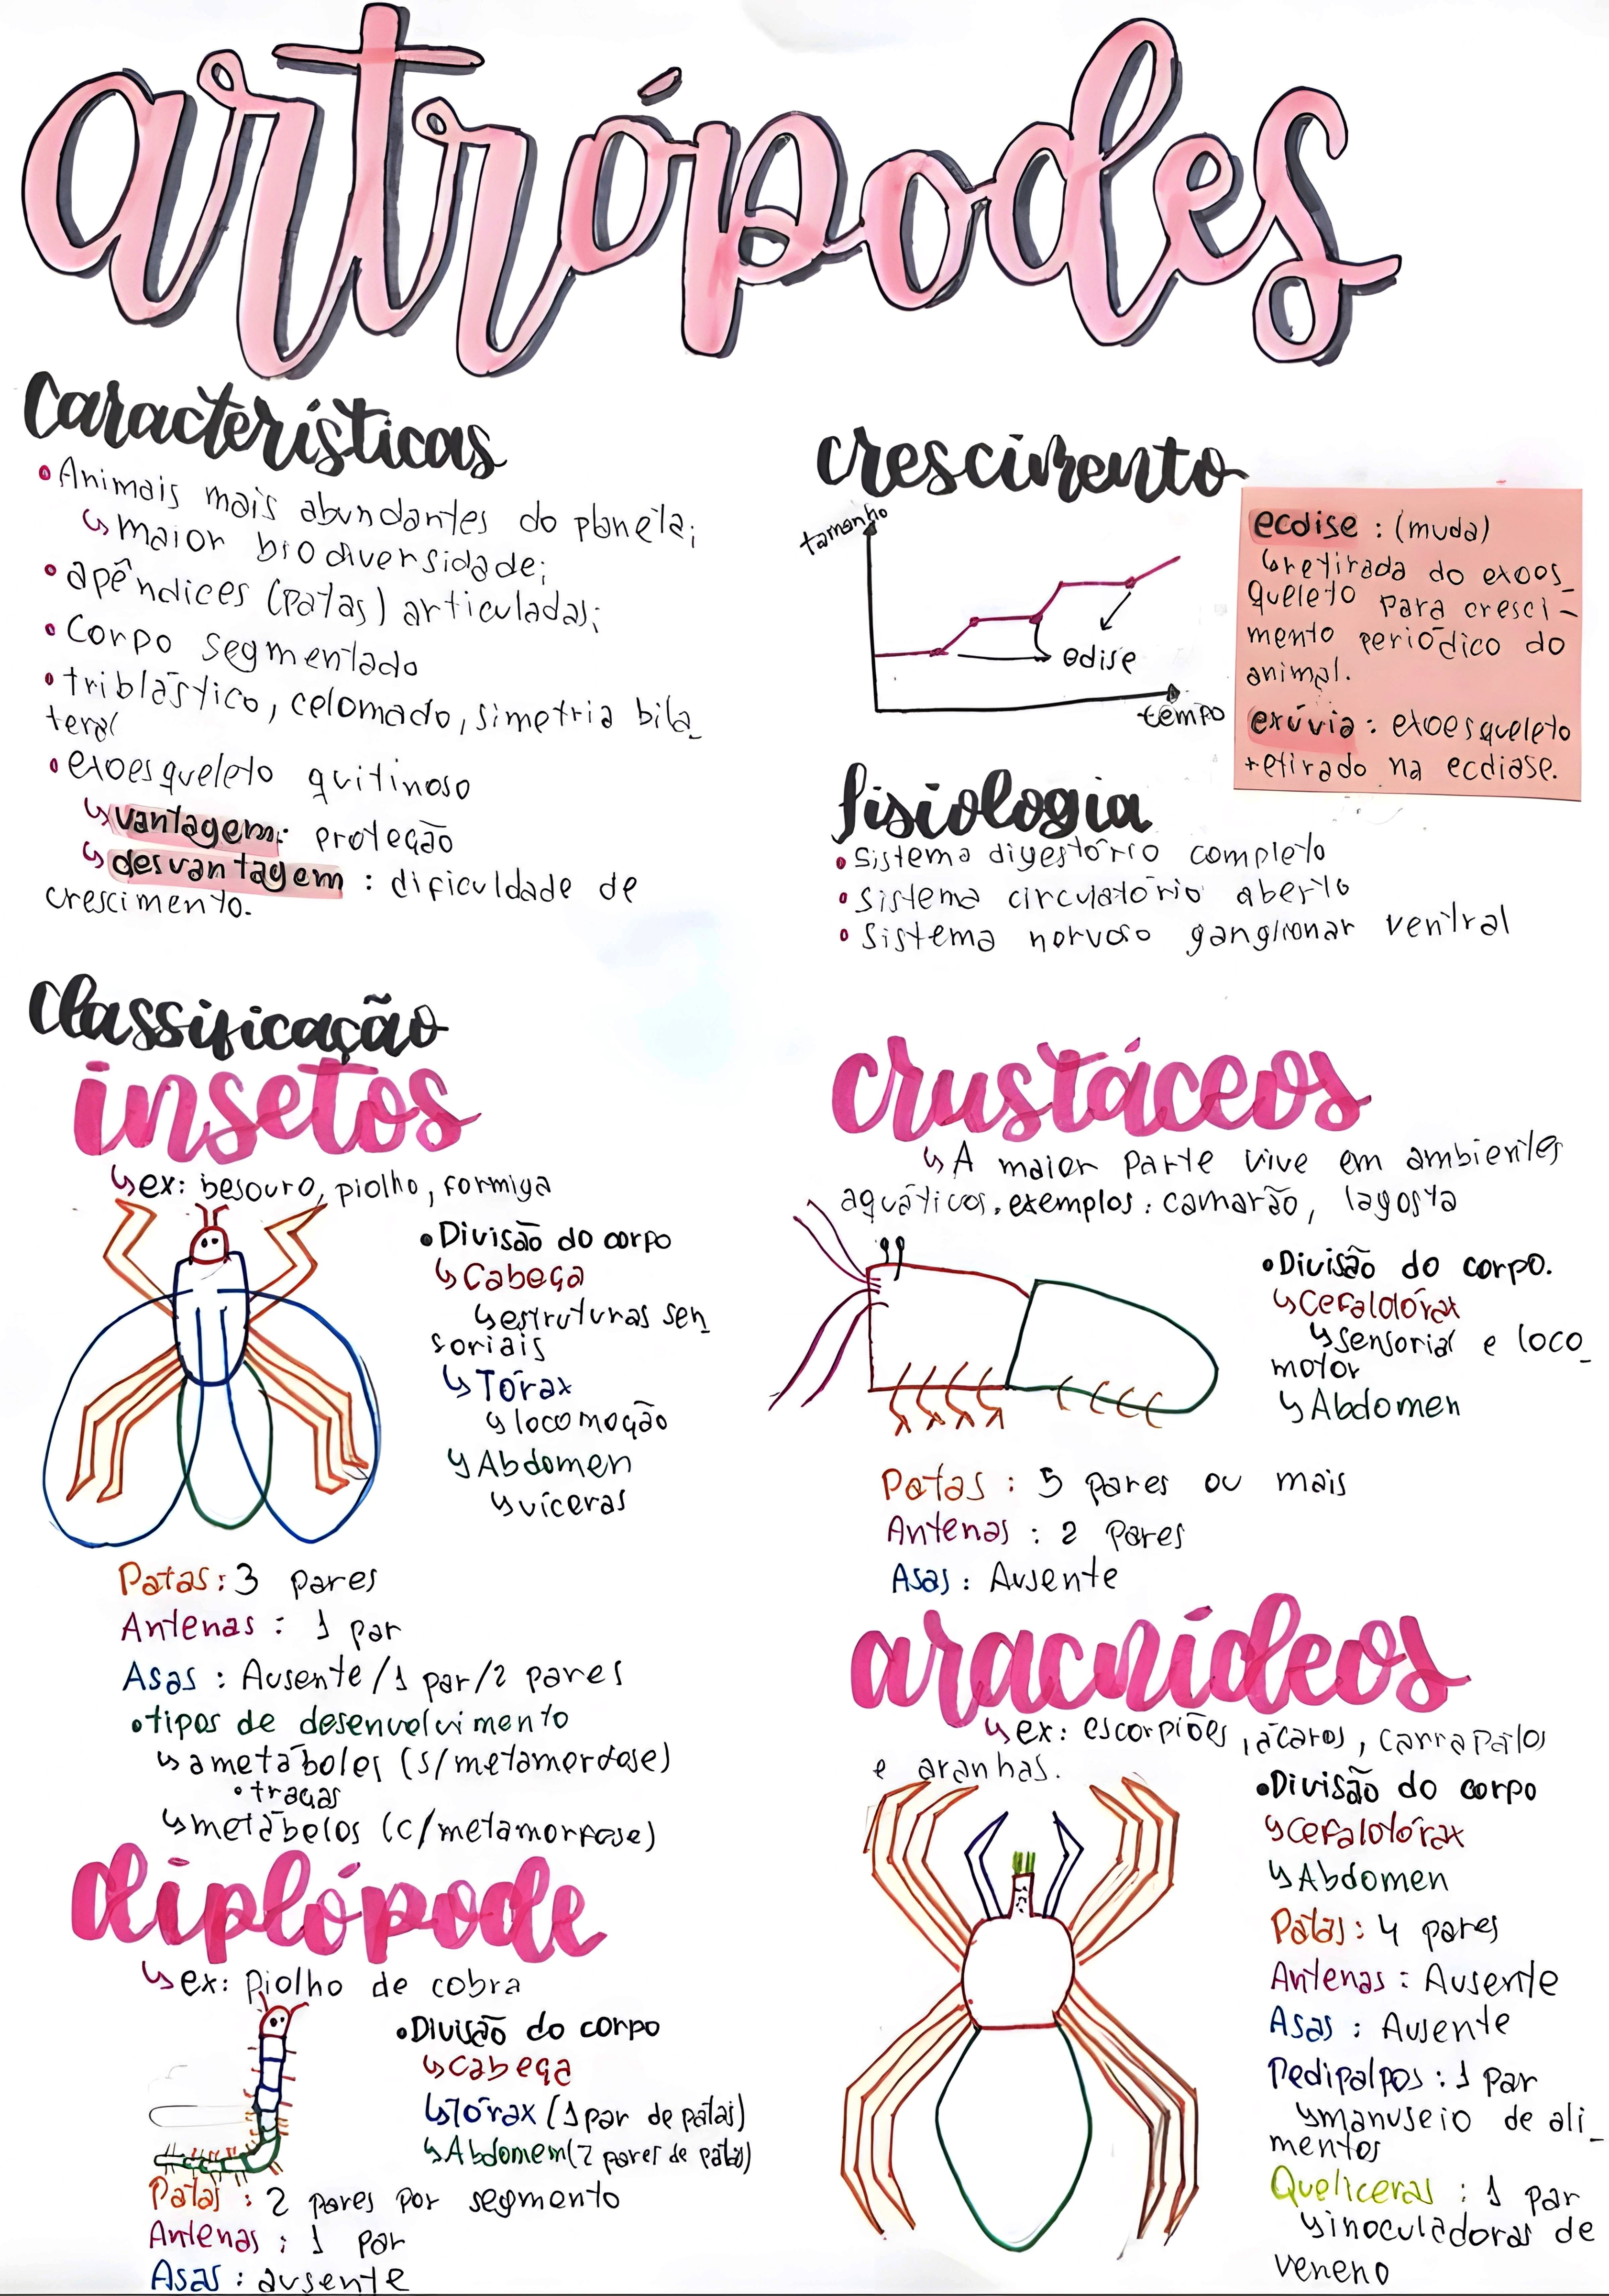 artrópodes
Características
• Animais mais abundantes do planeta;
↳ maior biodiversidade;
• apêndices (patas) articuladas;
• Corpo segmentado
• triblástico, celomado, simetria bila_
teral
• exoesqueleto quitinoso
↳ vantagem: proteção
↳ desvantagem: dificuldade de
crescimento.
crescimento
tamanho
edise
tempo
ecdise: (muda)
↳ retirada do exoes_
queleto para cresci-
mento periódico do
animal.
exúvia: exoesqueleto
retirado na ecdiase.
fisiologia
• Sistema digestório completo
• Sistema circulatório aberto
• Sistema nervoso ganglionar ventral
Classificação
insetos
↳ ex: besouro, piolho, formiga
• Divisão do corpo
↳ Cabeça
↳ estruturas sen_
soriais
↳ Tórax
↳ locomoção
↳ Abdomen
↳ víceras
Patas: 3 pares
Antenas: 1 par
Asas: Ausente/1 par/2 pares
• tipos de desenvolvimento
↳ ametábolos (s/metamorfose)
• traças
↳ metábolos (c/metamorfose)
diplópode
↳ ex: Piolho de cobra
• Divisão do corpo
↳ Cabeça
↳ Tórax (1 par de patas)
↳ Abdomem (2 pares de patas)
Patas: 2 pares por segmento
Antenas: 1 par
Asas: ausente
crustáceos
↳ A maior parte vive em ambientes
aquáticos. exemplos: camarão, lagosta
• Divisão do corpo.
↳ Cefalotórax
↳ sensorial e loco_
motor
↳ Abdomen
Patas: 5 pares ou mais
Antenas: 2 Pares
Asas: Ausente
aracnídeos
↳ ex: escorpiões, ácaros, carrapatos
e aranhas.
• Divisão do corpo
↳ Cefalotórax
↳ Abdomen
Patas: 4 pares
Antenas: Ausente
Asas: Ausente
Pedipalpos: 1 par
↳ manuseio de ali_
mentos
Queliceras: 1 par
↳ inoculadoras de
veneno